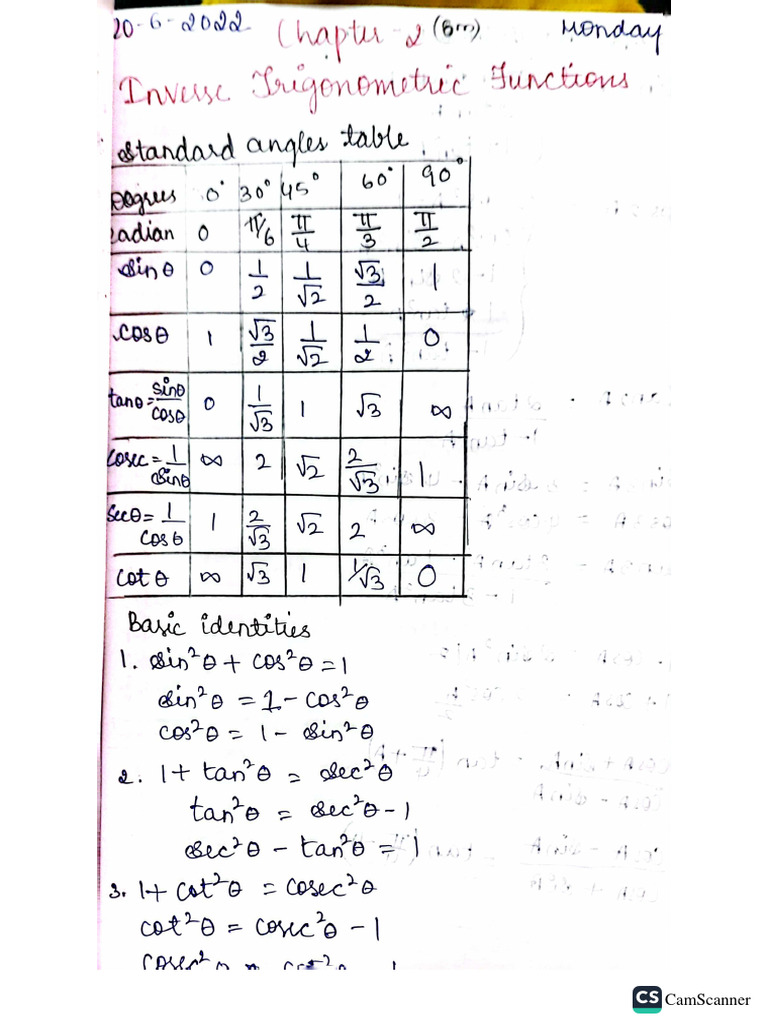 20-6-2022 Chapter-2 (6m) Monday
Inverse Trigonometric Functions
Standard angles table
Degrees 0° 30° 45° 60° 90°
radian 0 π/6 π/4 π/3 π/2
sinθ 0 1/2 1/√2 √3/2 1
cosθ 1 √3/2 1/√2 1/2 0
tanθ=sinθ/cosθ 0 1/√3 1 √3 ∞
cosec=1/sinθ ∞ 2 √2 2/√3 1
secθ=1/cosθ 1 2/√3 √2 2 ∞
cotθ ∞ √3 1 1/√3 0
Basic identities
1. sin²θ + cos²θ = 1
sin²θ = 1 - cos²θ
cos²θ = 1 - sin²θ
2. 1 + tan²θ = sec²θ
tan²θ = sec²θ - 1
sec²θ - tan²θ = 1
3. 1 + cot²θ = cosec²θ
cot²θ = cosec²θ - 1
CS CamScanner